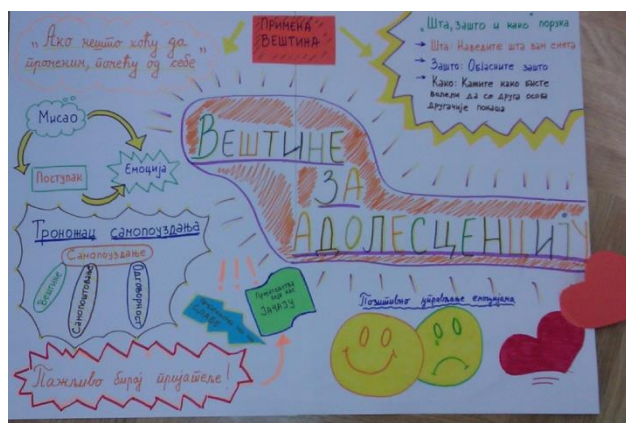 „Ако нешто хоћу да
променим, почећу од себе"
ПРИМЕНА
ВЕШТИНА
„Шта, зашто и како" порука
Шта: Наведите шта вам смета
Зашто: Објасните зашто
Како: Кажите како бисте
волели да се друга особа
другачије понаша
Мисао
Поступак
Емоција
ВЕШТИНЕ
ЗА
АДОЛЕСЦЕНЦИЈУ
Троножац самопоуздања
Самопоуздање
Вештине
Самопоштовање
Одговорност
!!!
Пријатељства која нас
СЛАБЕ
Пријатељства
која нас
ЈАЧАЈУ
Позитивно управљање емоцијама
Пажљиво бирај пријатеље!